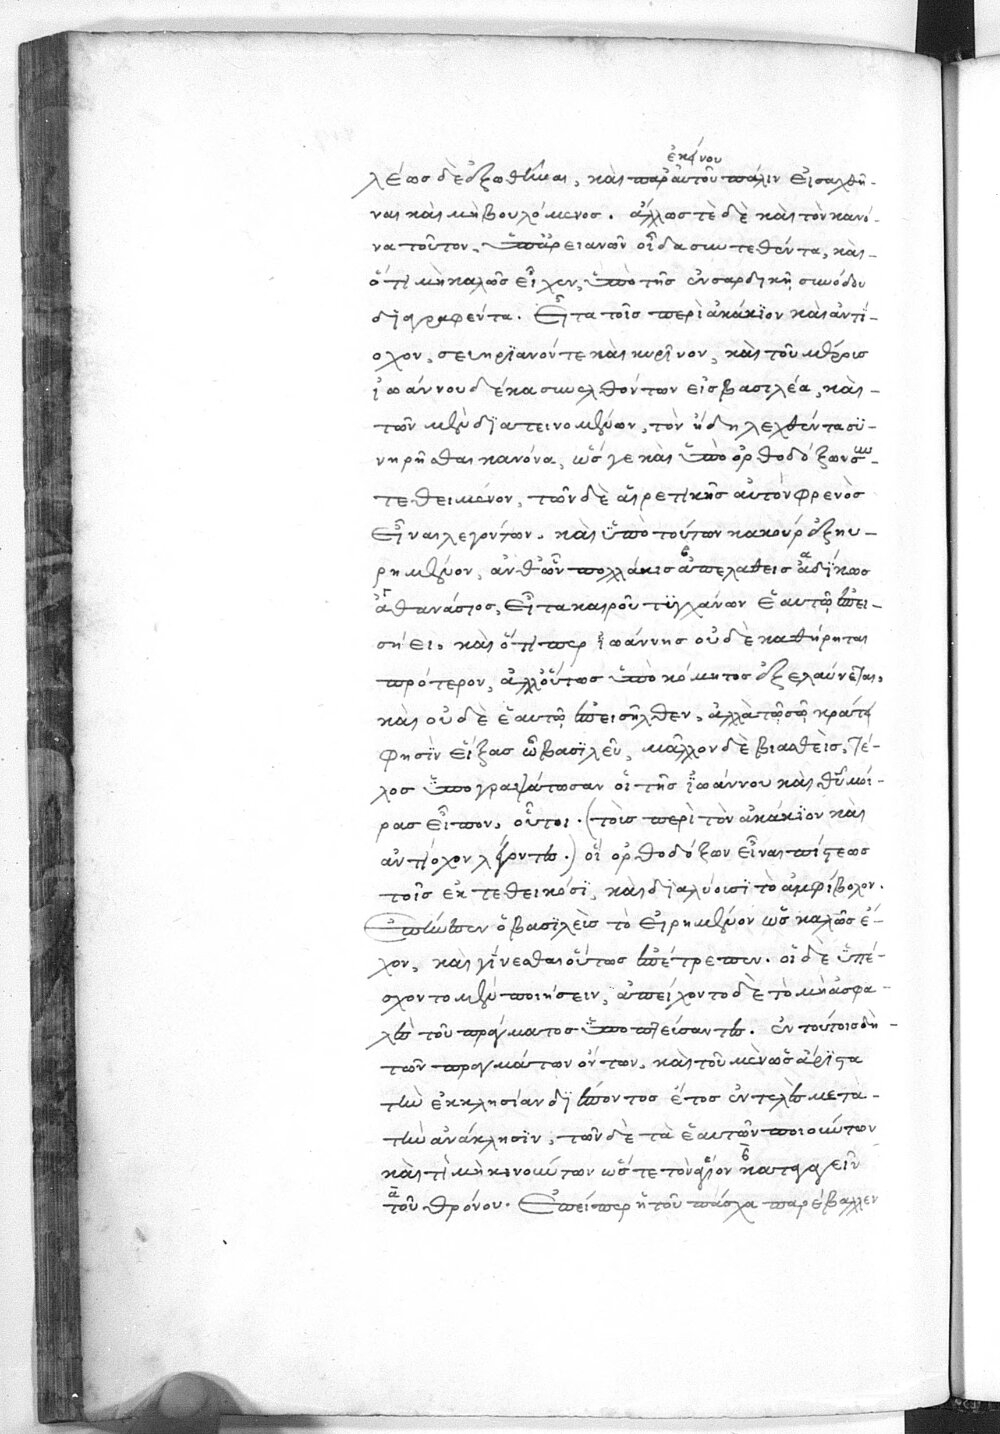 ἐκείνου
λέως δὲ ἐξωθῆναι, καὶ παρ' αὐτοῦ πάλιν εἰσαχθῆ-
ναι καὶ μὴ βουλόμενος. ἄλλως τὲ δὲ καὶ τὸν κανό-
να τοῦτον, ὑπ' ἀρειανῶν οἶδα συντεθέντα, καὶ
ὅτι μὴ καλῶς εἶχεν, ὑπὸ τῆς ἐν σαρδικῇ συνόδου
διαγραφέντα. Εἶτα τοῖς περὶ ἀκάκιον καὶ ἀντί-
οχον, σευηριανόν τε καὶ κυρῖνον, καὶ τοῦ μέρους
ἰωάννου δέκα συνελθόντων εἰς βασιλέα, καὶ
τῶν μὲν διατεινομένων, τὸν ἤδη λεχθέντα συ-
νηρῆσθαι κανόνα, ὥς γε καὶ ὑπὸ ὀρθοδόξων συν-
τεθειμένον, τῶν δὲ αἱρετικῆς αὐτὸν φρενὸς
εἶναι λεγόντων. καὶ ὑπὸ τούτων κακούργ ἐξηυ-
ρημένον, ἀνθ' ὧν πολλάκις ἀπελαθεὶς ἀδίκως
ἀθανάσιος, εἶτα καιροῦ τυγχάνων ἑαυτῷ ἐπει-
σήει. καὶ ὅτιπερ ἰωάννης οὐδὲ καθήρηται
πρότερον, ἀλλ' οὕτως ὑπὸ κόμητος ἐξελαύνεται.
καὶ οὐδὲ ἑαυτῷ ἐπεισῆλθεν, ἀλλὰ τῷ σῷ κράτει
φησὶν εἴξας ὦ βασιλεῦ, μᾶλλον δὲ βιασθεὶς. Τέ-
λος ὑπογραψάτωσαν οἱ τῆς ἰωάννου καὶ θυ μοί-
ρας εἶπον, οὗτοι. (τοῖς περὶ τὸν ἀκάκιον καὶ
ἀντίοχον λέγοντες.) οἱ ὀρθοδόξων εἶναι πίστεως
τοῖς ἐκτεθεικόσι, καὶ διαλύουσι τὸ ἀμφίβολον.
Ἐπῄνεσεν ὁ βασιλεὺς τὸ εἰρημένον ὡς καλῶς ἔ-
χον, καὶ γίνεσθαι οὕτως ἐπέτρεπεν. οἱ δὲ ὑπέ-
σχοντο μὲν ποιήσειν, ἀπείχοντο δὲ τὸ μὴ ἀσφα-
λὲς τοῦ πράγματος ὑποπτεύσαντες. ἐν τούτοις δὴ
τῶν πραγμάτων ὄντων, καὶ τοῦ μὲν ὡς ἄριστα
τὴν ἐκκλησίαν διέποντος ἔτος ἐντελὲς μετὰ
τὴν ἀνάκλησιν, τῶν δὲ τὰ ἑαυτῶν ποιούντων
καὶ τι μὴ κινούντων ὥστε τὸν ἅγιον καταγαγεῖν
τοῦ θρόνου. Ἐπείπερ ἡ τοῦ πάσχα παρέβαλλεν